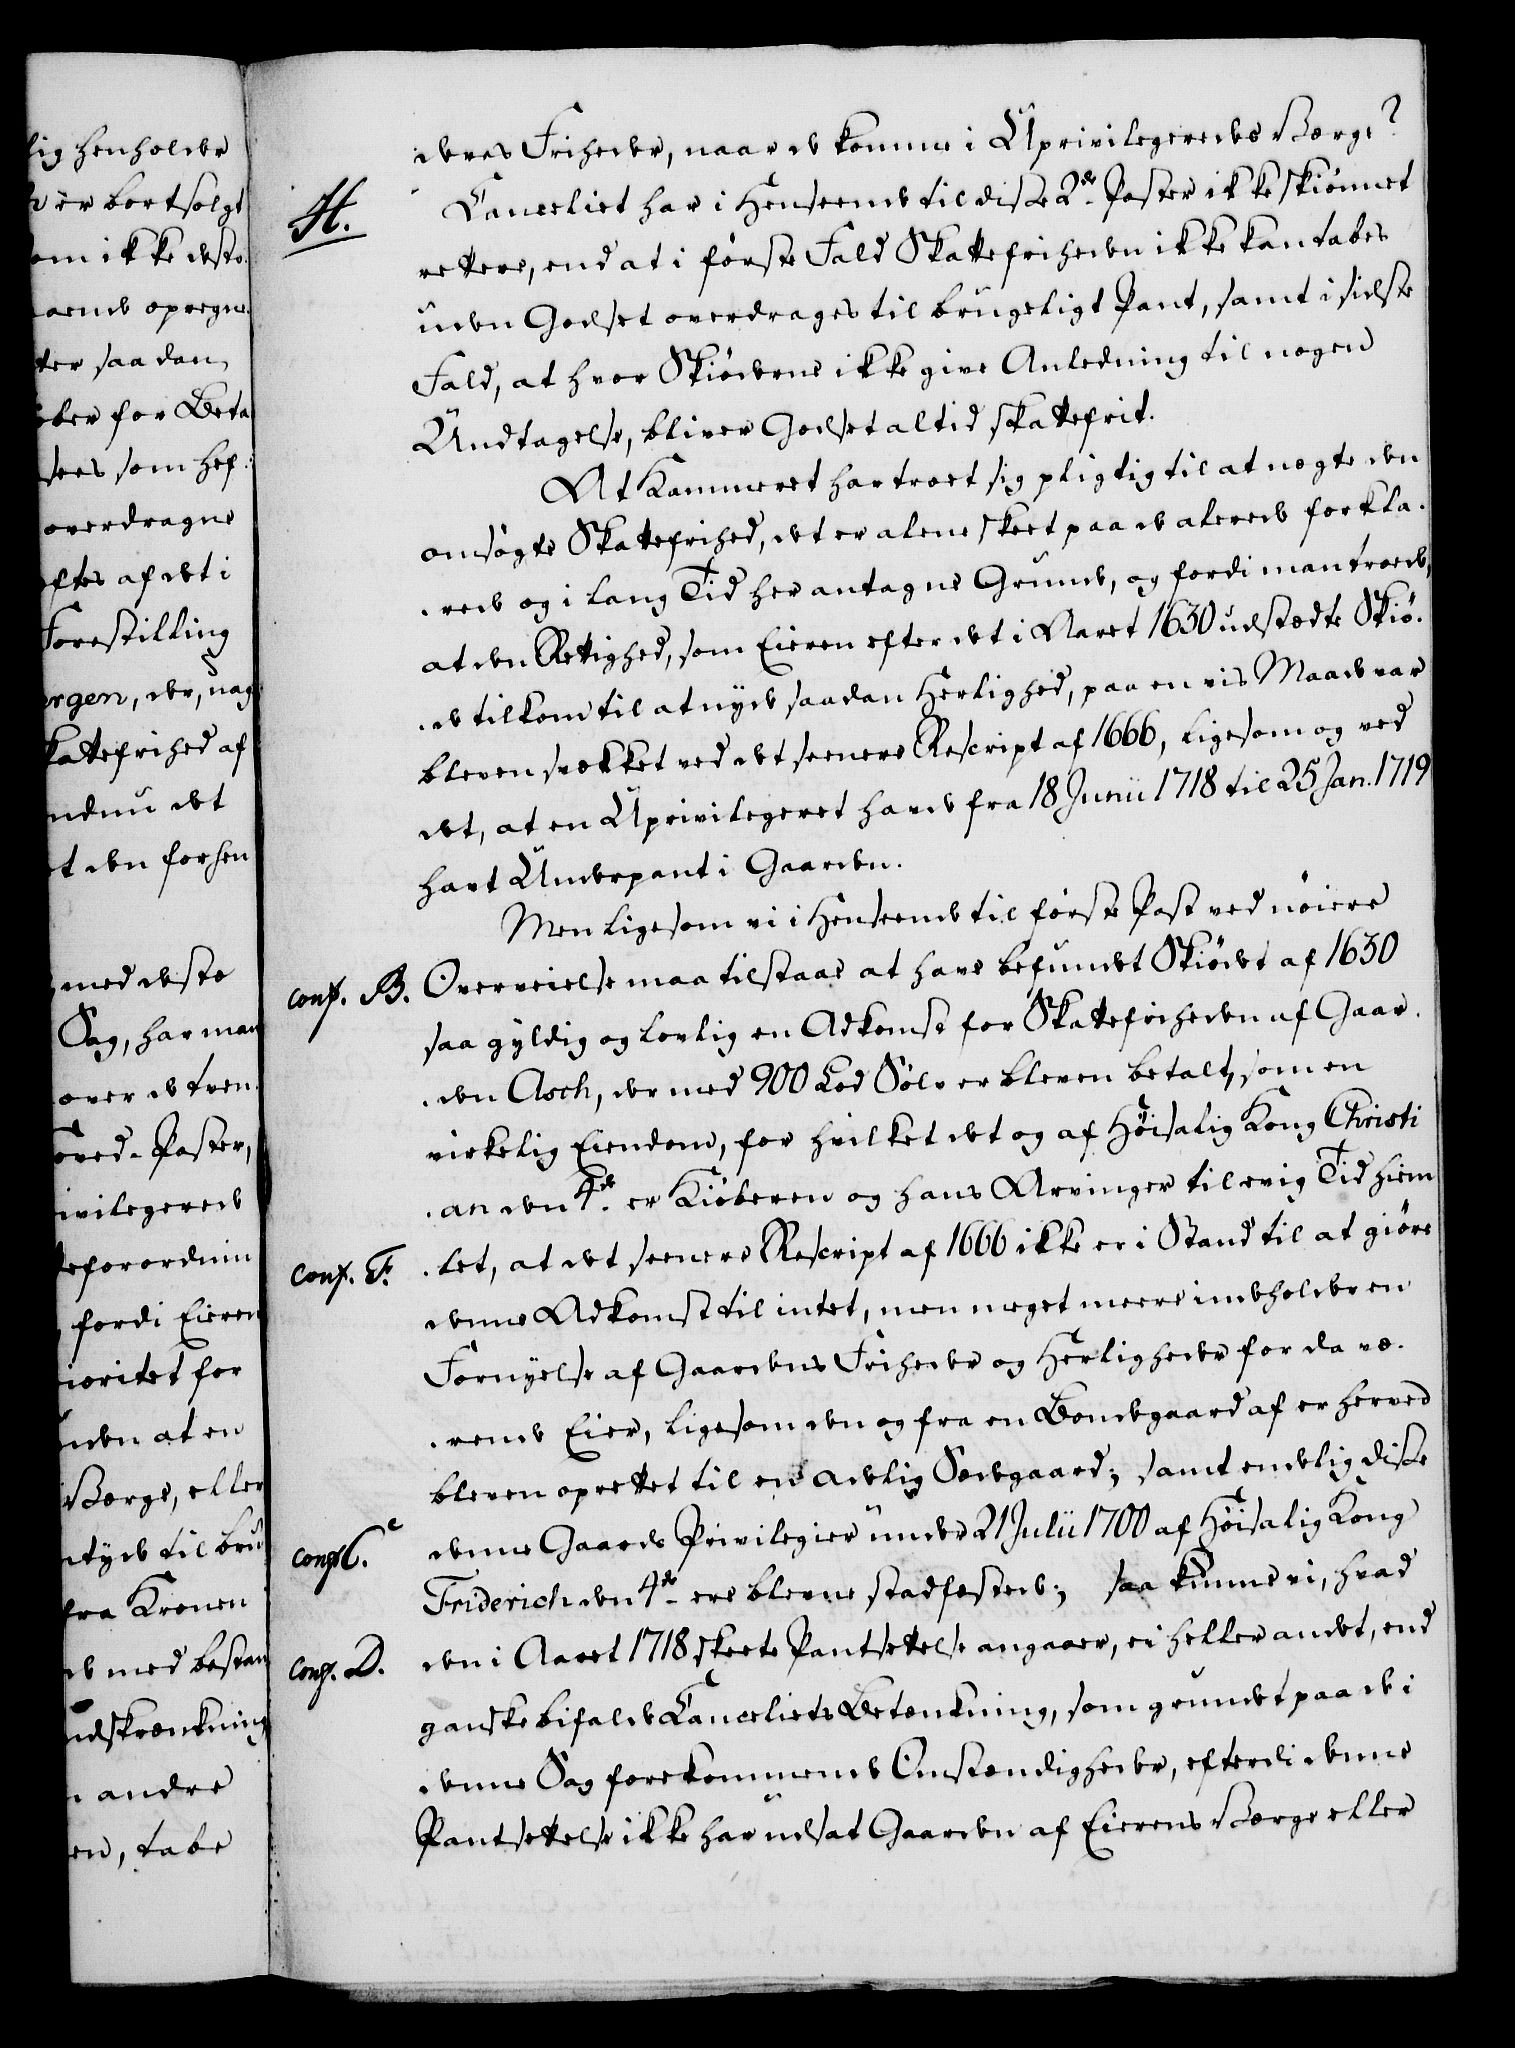 lig henholder
er bortsolgt
om ikke desto
aende opregne
ter saadan
ber for Beta
sees som hef
overdragne
ftes af det i
Forestilling
ergen, der, uag
kattefrihed af
ndnu det
t den forhen
med deste
Sag, har man
over de tven
oved-Poster,
ivilegerede
eforordnin
fordi Eieren
ioritet for
uden at en
Værge, eller
ntyde til bru
fra Kronen
de med bestan
ndskrænkning
andre
en, tabe
deres Friheder, naar de komme i Uprivilegeredes Værge?
H.
Cancelliet har i Henseende til disse 2de Poster ikke skiønnet
rettere, end at i første Fald Skattefriheden ikke kan tabes
uden Godset overdrages til brugeligt Pant, samt i sidste
Fald, at hvor Skiøderne ikke give Anledning til nogen
Undtagelse, bliver Godset altid skattefrit.
At Kammeret har troet sig pligtig til at negte den
omsøgte Skattefrihed, det er alene skeet paa de allerede forkla-
-rede og i lang Tid her antagne Grunde, og fordi man troede,
at den Rettighed, som Eieren efter det i Aaret 1630 udstædte Skiø-
-de tilkom til at nyde saadan Herlighed, paa en vis Maade var
bleven svækket ved det seenere Rescript af 1666, ligesom og ved
det, at en Uprivilegeret havde fra 18 Junii 1718 til 25 Jan. 1719
havt Underpant i Gaarden.
Men ligesom vi i Henseende til første Post ved nøiere
conf. B. Overveielse maa tilstaae at have befundet Skiødet af 1630
saa gyldig og lovlig en Adkomst for Skattefriheden af Gaar-
-den Asch, der med 900 Lod Sølv er bleven betalt, som en
virkelig Eiendom, for hvilket det og af Høisalig Kong Christi
-an den 4de er Kiøberen og hans Arvinger til evig Tid hiem
conf. F. -let, at det seenere Rescript af 1666 ikke er i Stand til at giøre
denne Adkomst til intet, men meget meere indeholder en
Fornyelse af Gaardens Friheder og Herligheder for da væ-
-rende Eier, ligesom den og fra en Bondegaard af er herved
bleven oprettet til en adelig Sædegaard; samt endelig disse
conf. C. denne Gaards Privilegier under 21 Julii 1700 af Høisalig Kong
Friderich den 4de ere blevne stadfæstede; saa kunne vi, hvad
conf. D. den i Aaret 1718 skeete Pantsettelse angaaer, ei heller andet, end
ganske bifalde Cancelliets Betænkning, som grundet paa de i
denne Sag forekommende Omstændigheder, efterdi denne
Pantsettelse ikke har udsat Gaarden af Eierens Værge eller